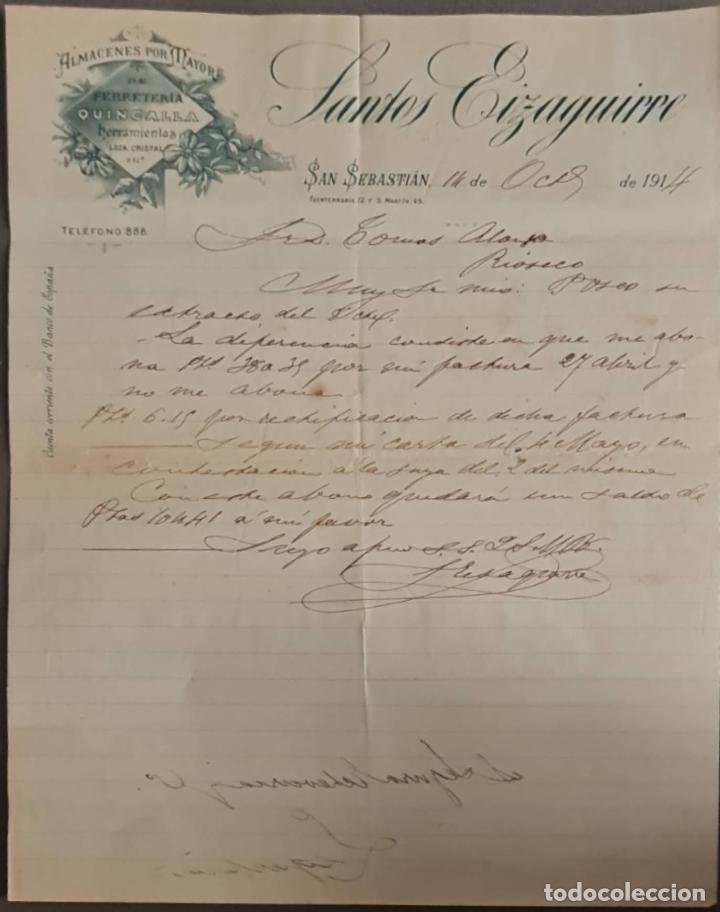 ALMACENES POR MAYOR
DE
FERRETERÍA
QUINCALLA
herramientas
LOZA, CRISTAL
Santos Eizaguirre
SAN SEBASTIÁN, 14 de Octe de 1914
FUENTERRABÍA 12 Y S. MARTÍN, 45.
TELÉFONO 888.
Cuenta corriente con el Banco de España
Sr D. Tomas Alonso
Rioseco
Muy Sr mio: Poseo su
extracto del
La diferencia consiste en que me abo
na Pts 38035 por mi factura 27 abril y
no me abona
Pts 6.15 por rectificacion de dicha factura
segun mi carta del 4 Mayo, en
contestacion a la suya del 2 del mismo
Con este abono quedará un saldo de
Ptas 104.41 á mi favor
Suyo afmo S. S. Q. S. M. B.
S Eizaguirre
todocoleccion.net